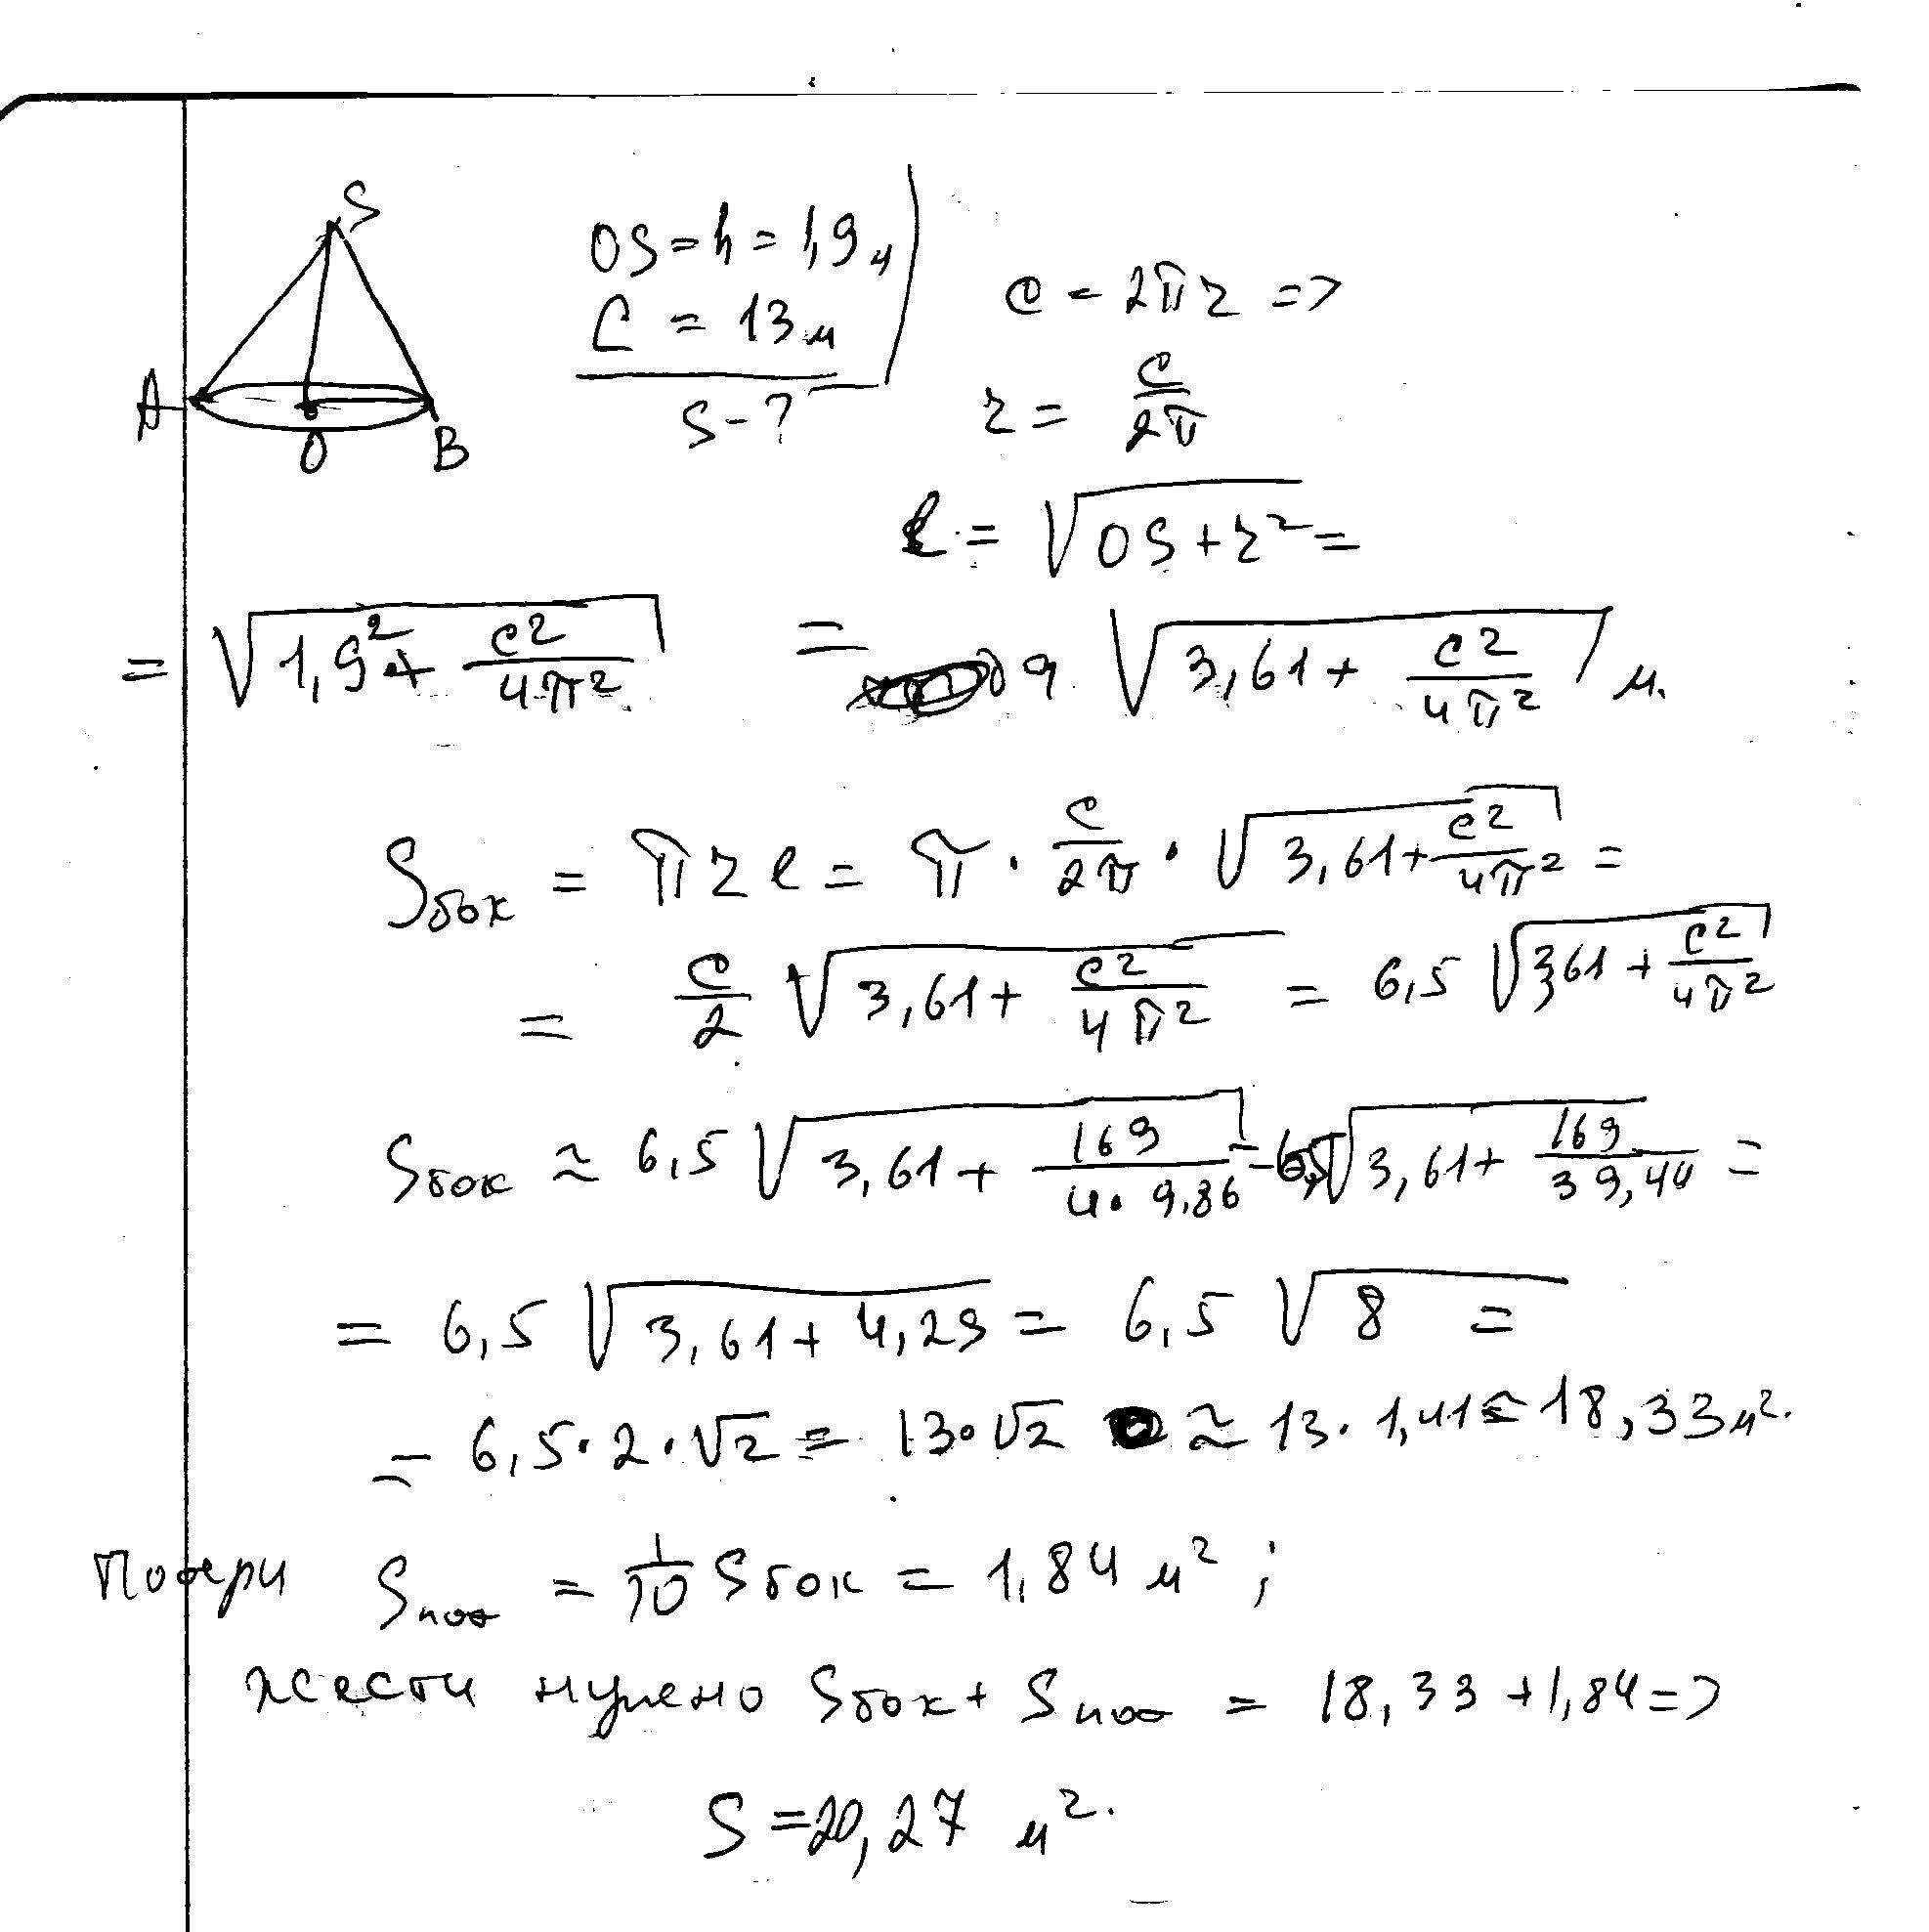 S
OS = h = 1,9 м
C = 13 м
S - ?
A
O
B
c = 2πr =>
r = c/2π
l = √(OS + r²) =
= √(1,9² + c²/4π²) = √(3,61 + c²/4π²) м.
Sбок = πrl = π · c/2π · √(3,61 + c²/4π²) =
= c/2 √(3,61 + c²/4π²) = 6,5 √(3,61 + c²/4π²)
Sбок ≈ 6,5 √(3,61 + 169/4·9,86) = 6,5 √(3,61 + 169/39,44) =
= 6,5 √(3,61 + 4,29) = 6,5 √8 =
= 6,5 · 2 · √2 = 13 · √2 ≈ 13 · 1,41 = 18,33 м².
Потери Sпот = 1/10 Sбок = 1,84 м² ;
жести нужно Sбок + Sпот = 18,33 + 1,84 =>
S = 20,27 м².